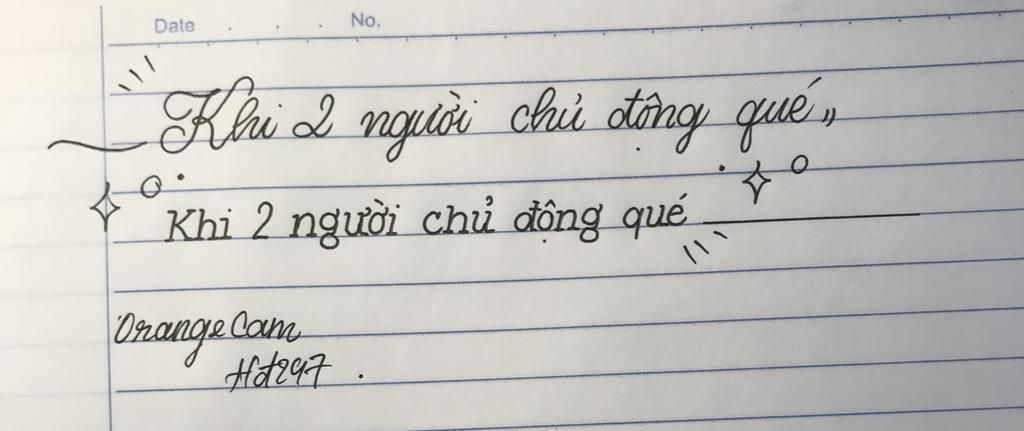 Date No.
Khi 2 người chủ động qué,,
Khi 2 người chủ động qué
OrangeCam
Hd297.